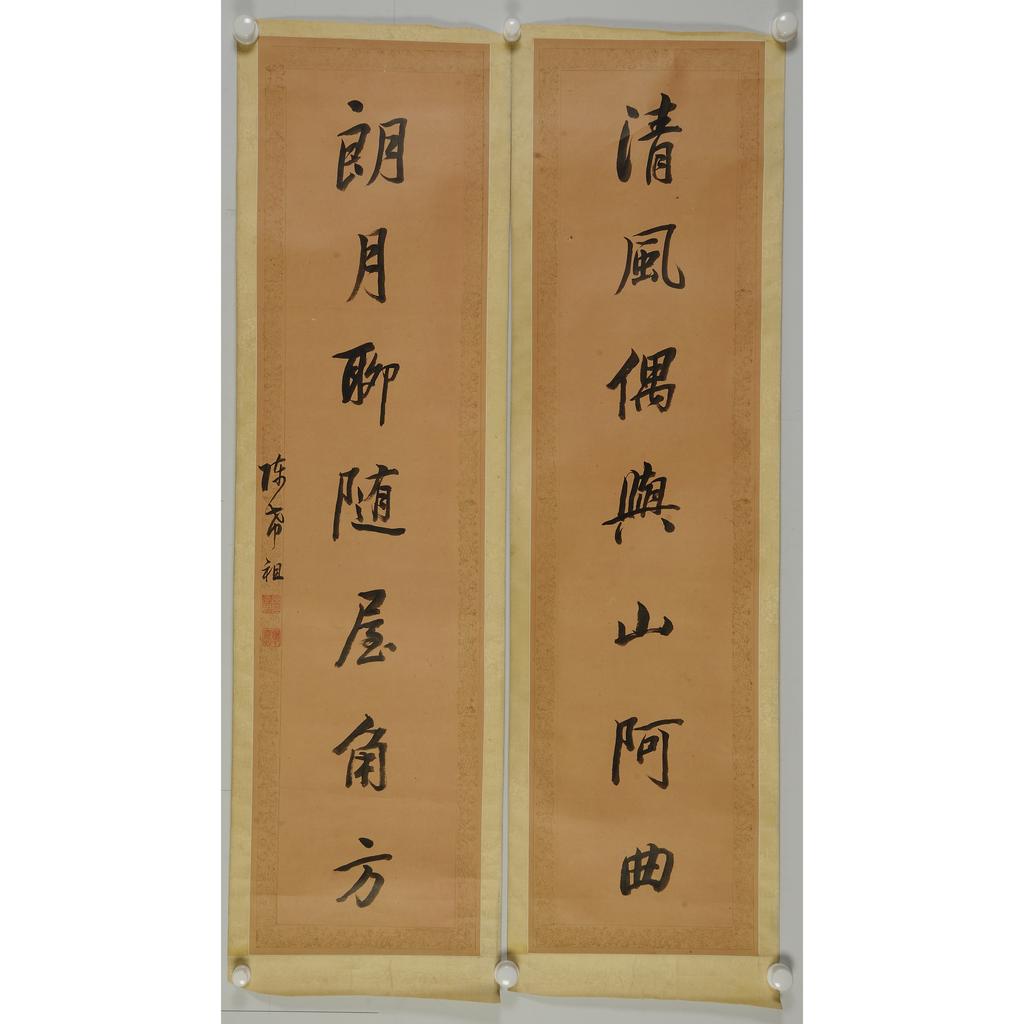 清風偶與山阿曲
朗月聊随屋角方
陳希祖